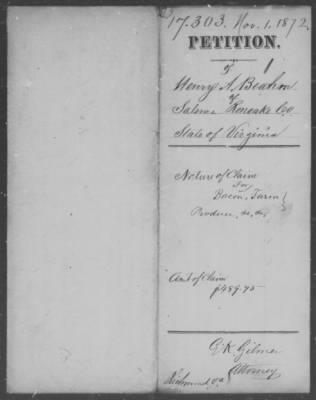 17.303. Nov. 1, 1872.
PETITION.
of
Henry A.
of
Salem Roanoke Co
State of Virginia
Nature of Claim
For
Bacon, Farm
Produce, &c, &c,
Amt of Claim
$489.75
G. K. Gilmer
Attorney
Richmond Va